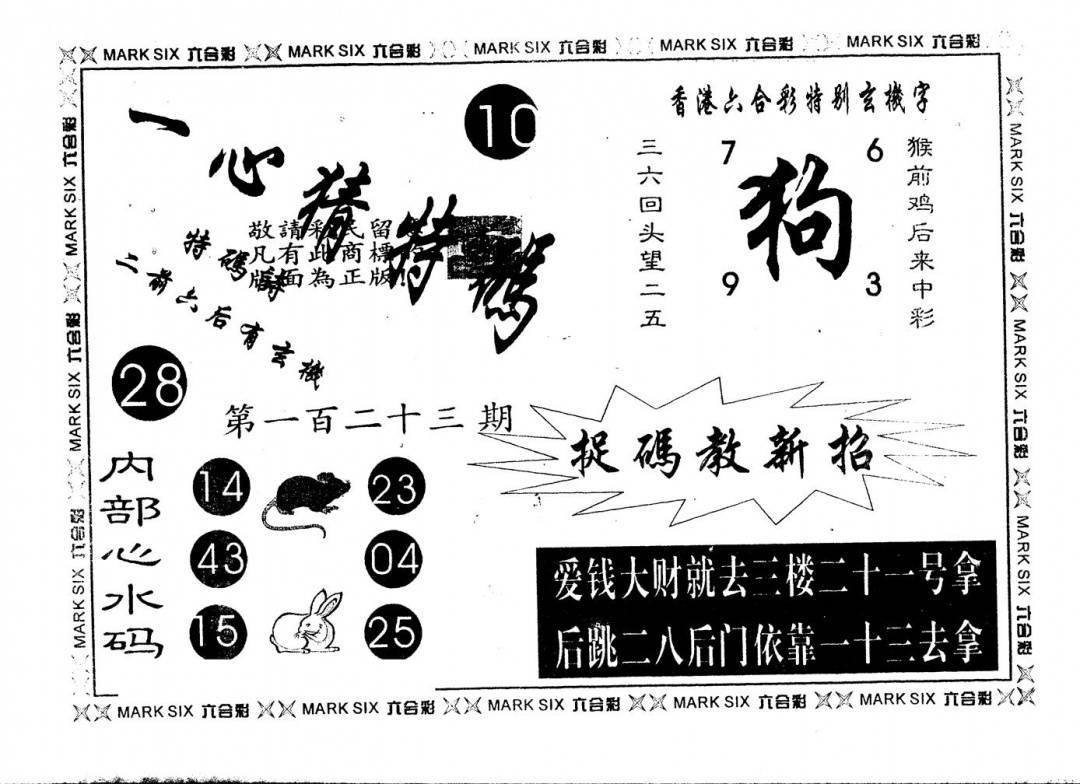 MARK SIX 六合彩 MARK SIX 六合彩 MARK SIX 六合彩 MARK SIX 六合彩 MARK SIX 六合彩
MARK SIX 六合彩
MARK SIX 六合彩
MARK SIX 六合彩
MARK SIX 六合彩
MARK SIX 六合彩
MARK SIX 六合彩
一心猜特碼
10
敬請彩民留
凡有此商標
版面為正版!
特碼詩
二前六后有玄機
28
第一百二十三期
香港六合彩特别玄機字
三六回头望二五
7 6
狗
9 3
猴前鸡后来中彩
捉碼教新招
内部心水码
14 23
43 04
15 25
爱钱大财就去三楼二十一号拿
后跳二八后门依靠一十三去拿
MARK SIX 六合彩 MARK SIX 六合彩 MARK SIX 六合彩 MARK SIX 六合彩 MARK SIX 六合彩